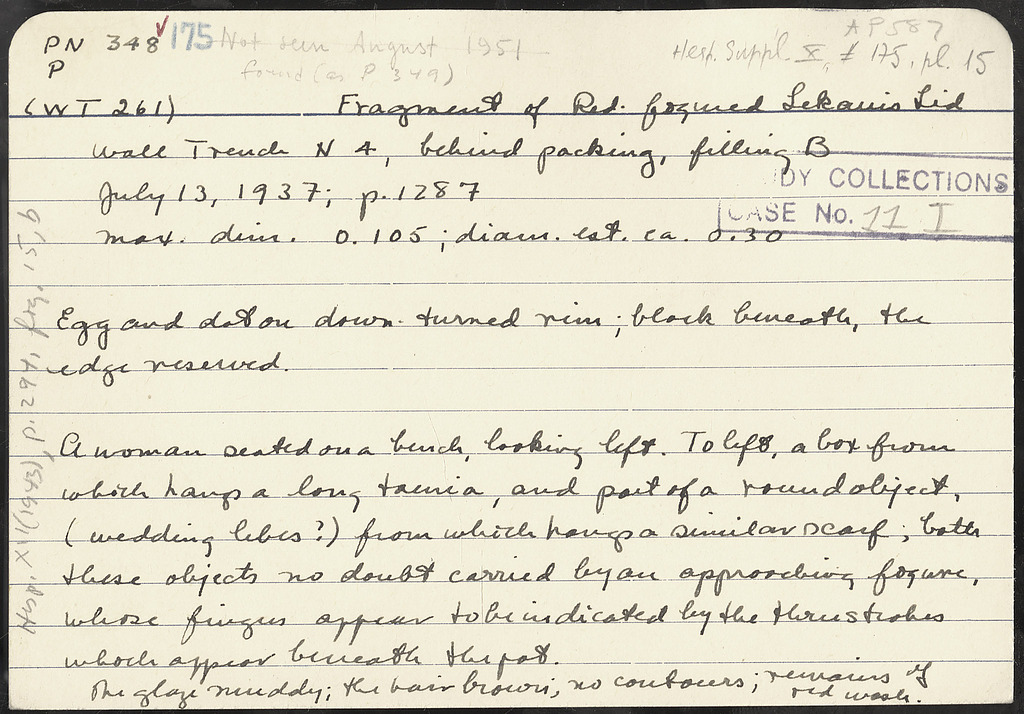 PN 348 175 Not seen August 1951 AP 587
P found (as P 349) Hesp. Suppl. X, # 175, pl. 15
(WT 261) Fragment of Red-figured Lekanis Lid
Wall Trench N 4, behind packing, filling B
July 13, 1937; p. 1287
max. dim. 0.105; diam. est. ca. 0.30
DY COLLECTIONS
CASE No. 11 I
Egg and dot on down-turned rim; black beneath, the
edge reserved.
A woman seated on a bench, looking left. To left, a box from
which hangs a long taenia, and part of a round object,
(wedding lebes?) from which hangs a similar scarf; both
these objects no doubt carried by an approaching figure,
whose fingers appear to be indicated by the three strokes
which appear beneath the pot.
The glaze muddy; the hair brown; no contours; remains of
red wash.
Hesp. XII (1943), p. 294, fig. 15, 9